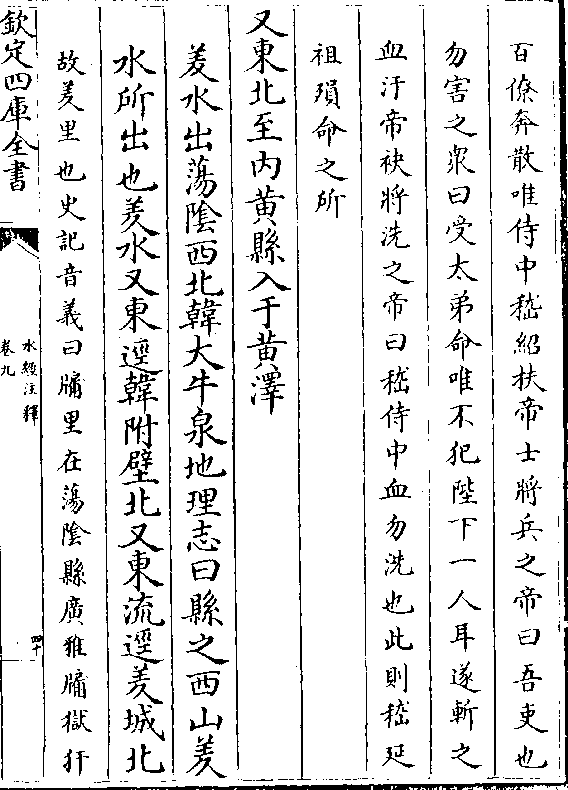 百僚奔散唯侍中嵇紹扶帝士將兵之帝曰吾吏也
勿害之衆曰受太弟命唯不犯陛下一人耳遂斬之
血汙帝袂將洗之帝曰嵇侍中血勿洗也此則嵇延
祖殞命之所
又東北至内黄縣入于黄澤
羑水出蕩陰西北韓大牛泉地理志曰縣之西山羑
水所出也羑水又東逕韓附壁北又東流逕羑城北
故羑里也史記音義曰牖里在蕩陰縣廣雅牖獄犴
欽定四庫全書
水經注釋
卷九
四十